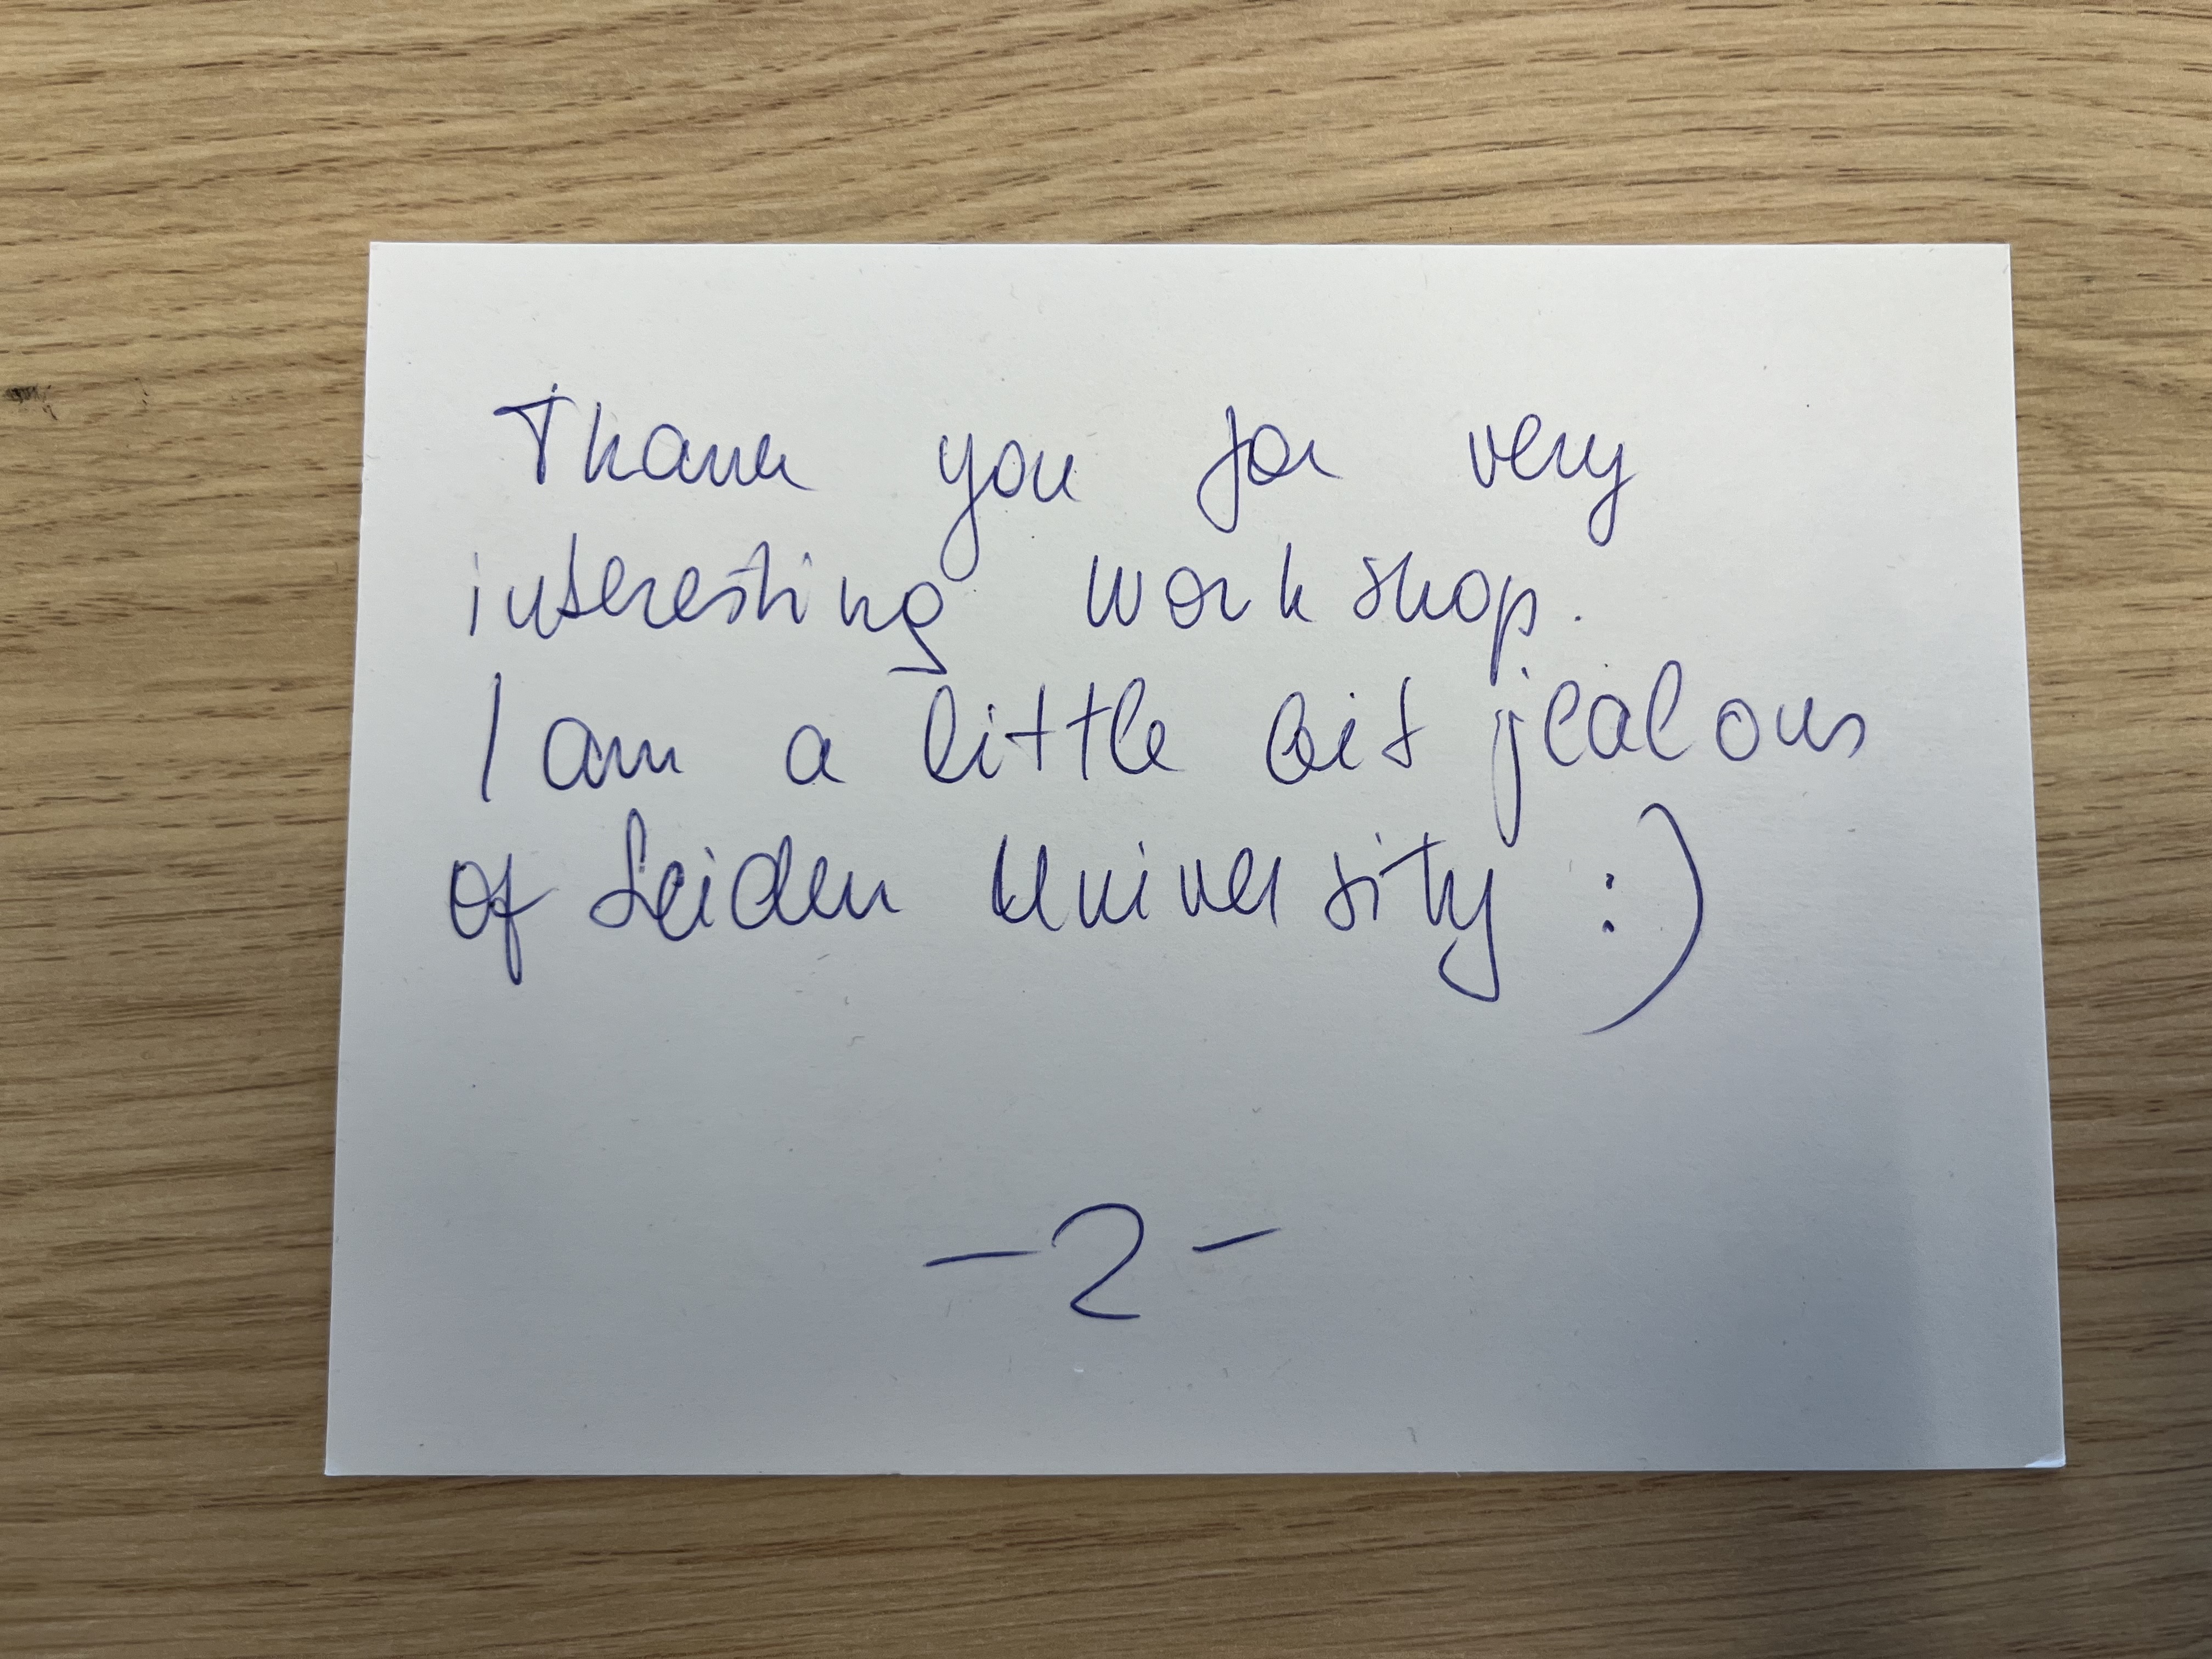 Thank you for very
interesting workshop.
I am a little bit jealous
of Leiden University :)
-2-